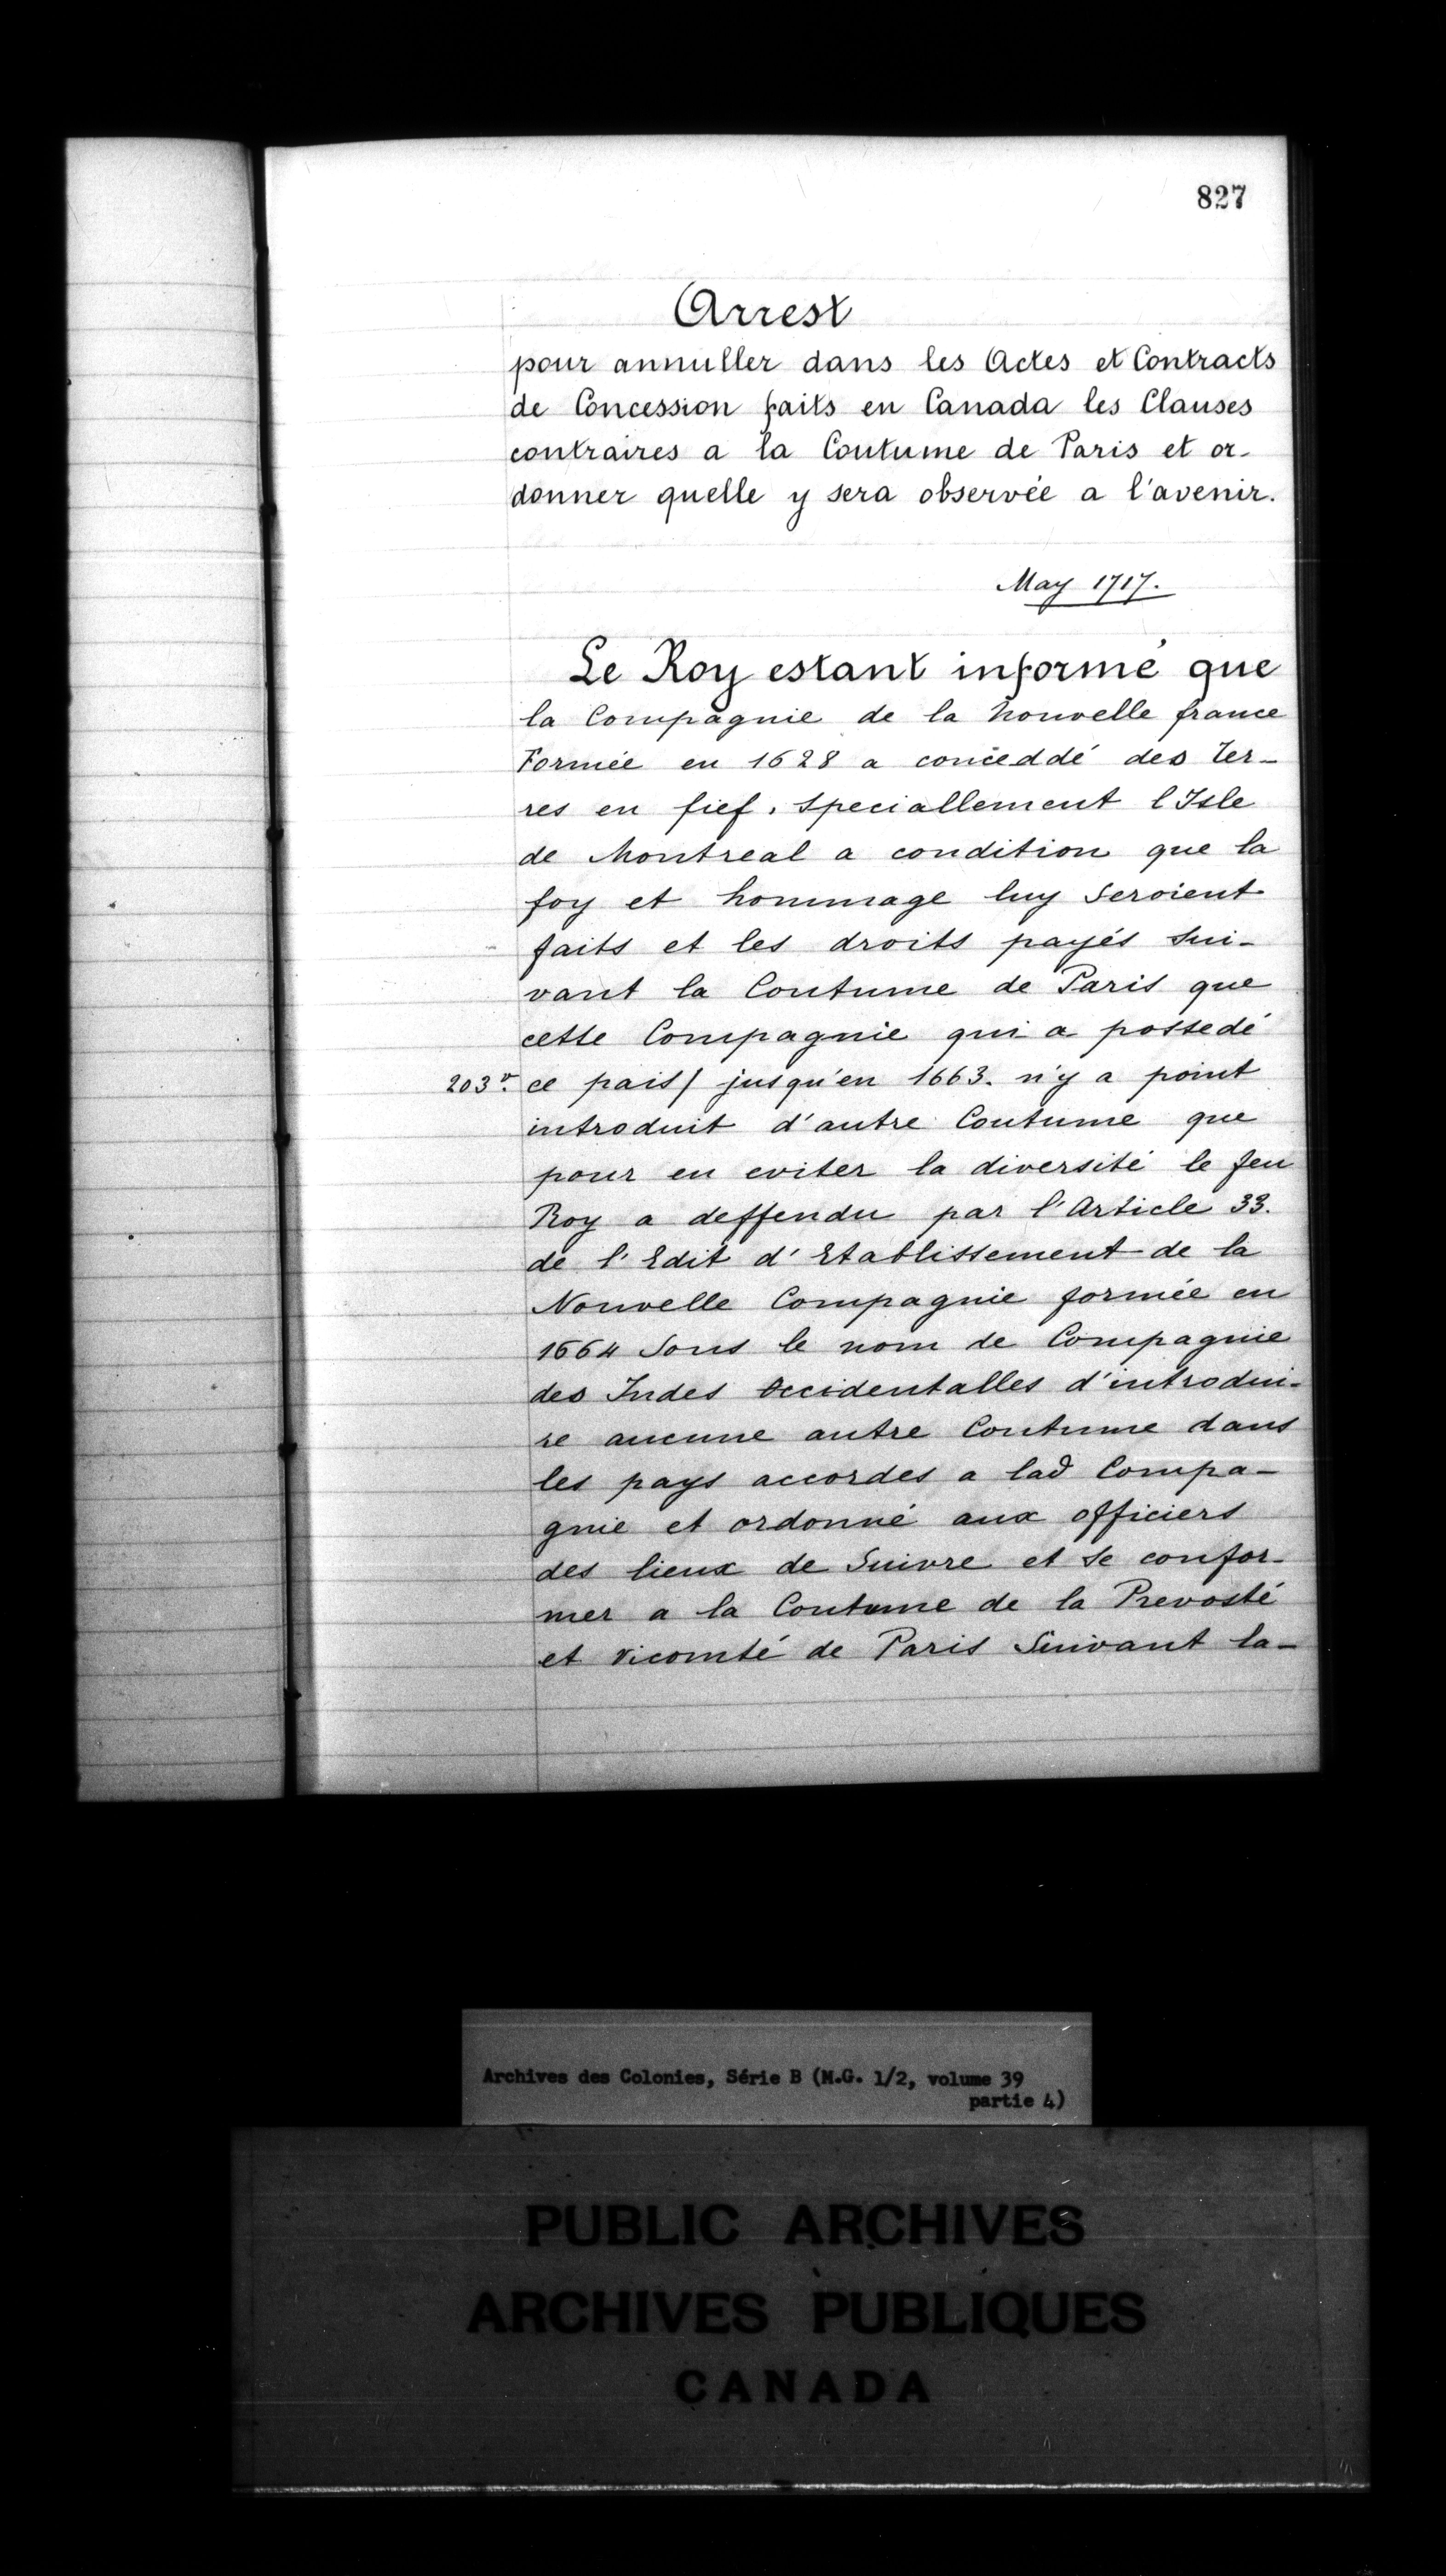 827
Arrest
pour annuller dans les Actes et Contracts
de Concession faits en Canada les Clauses
contraires a la Coutume de Paris et or-
donner quelle y sera observée a l'avenir.
May 1717.
Le Roy estant informé que
la Compagnie de la Nouvelle france
Formée en 1628 a conceddé des Ter-
res en fief, Speciallement l Isle
de Montreal a condition que la
foy et hommage luy Seroient
faits et les droits payés Sui-
vant la Coutume de Paris que
cette Compagnie qui a possedé
203 v. ce pais/ jusqu'en 1663. n'y a point
introduit d'autre Coutume que
pour en eviter la diversité le feu
Roy a deffendu par l'Article 33.
de l'Edit d'Etablissement de la
Nouvelle Compagnie formée en
1664 Sous le nom de Compagnie
des Indes Occidentalles d'introdui-
re aucune autre Coutume dans
les pays accordes a lad Compa-
gnie et ordonné aux officiers
des lieux de Suivre et Se confor-
mer a la Coutume de la Prevosté
et Vicomté de Paris Suivant la-
Archives des Colonies, Série B (M.G. 1/2, volume 39
partie 4)
PUBLIC ARCHIVES
ARCHIVES PUBLIQUES
CANADA